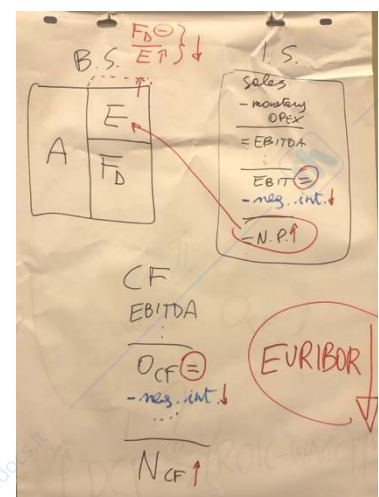 B.S.
F_D ⊖
E ↑
} ↓
A
E
F_D
I.S.
sales
- monetary
OPEX
= EBITDA
EBIT =
- neg. int. ↓
= N.P. ↑
CF
EBITDA
O_CF =
- neg. int. ↓
N_CF ↑
EURIBOR